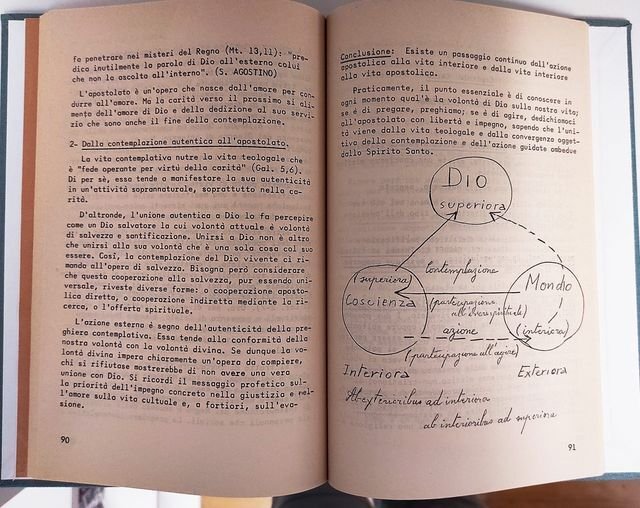 fa penetrare nei misteri del Regno (Mt. 13,11): "pre-
dica inutilmente la parola di Dio all'esterno colui
che non la ascolta all'interno". (S. AGOSTINO)
L'apostolato è un'opera che nasce dall'amore per con-
durre all'amore. Ma la carità verso il prossimo si ali-
mento dell'amore di Dio e della dedizione al suo servi-
zio che sono anche il fine della contemplazione.
2- Dalla contemplazione autentica all'apostolato.
La vita contemplativa nutre la vita teologale che
è "fede operante per virtù della carità" (Gal. 5,6).
Di per sè, essa tende a manifestare la sua autenticità
in un'attività soprannaturale, soprattutto nella ca-
rità.
D'altronde, l'unione autentica a Dio la fa percepire
come un Dio salvatore la cui volontà attuale è volontà
di salvezza e santificazione. Unirsi a Dio non è altro
che unirsi alla sua volontà che è una sola cosa col suo
essere. Così, la contemplazione del Dio vivente ci ri-
manda all'opera di salvezza. Bisogna però considerare
che questa cooperazione alla salvezza, pur essendo uni-
versale, riveste diverse forme: o cooperazione aposto-
lica diretta, o cooperazione indiretta mediante la ri-
cerca, o l'offerta spirituale.
L'azione esterna è segno dell'autenticità della pre-
ghiera contemplativa. Essa tende alla conformità della
nostra volontà con la volontà divina. Se dunque la vo-
lontà divina impera chiaramente un'opera da compiere,
chi si rifiutase mostrerebbe di non avere una vera
unione con Dio. Si ricordi il messaggio profetico sul-
la priorità dell'impegno concreto nella giustizia e nel-
l'amore sulla vita cultuale e, a fortiori, sull'eva-
sione.
90
Conclusione: Esiste un passaggio continuo dall'azione
apostolica alla vita interiore e dalla vita interiore
alla vita apostolica.
Praticamente, il punto essenziale è di conoscere in
ogni momento qual'è la volontà di Dio sulla nostra vita;
se è di pregare, preghiamo; se è di agire, dedichiamoci
all'apostolato con libertà e impegno, sapendo che l'uni-
tà viene dalla vita teologale e dalla convergenza ogget-
tiva della contemplazione e dell'azione guidate ambedue
dallo Spirito Santo.
Dio
superiora
(superiora)
Coscienza
Contemplazione
(partecipazione
all'essere spirituale)
azione
(partecipazione all'agire)
Mondo
(interiora)
Interiora
Exteriora
Ab exterioribus ad interiora
ab interioribus ad superiora
91